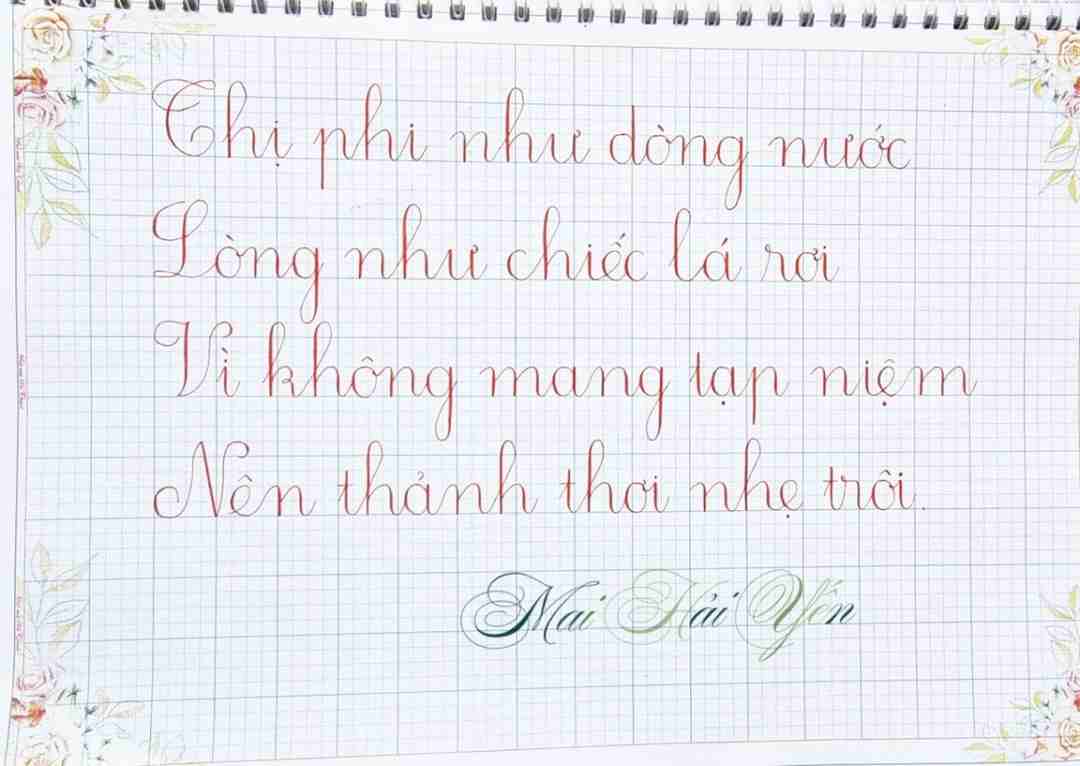 Thị phi như dòng nước
Lòng như chiếc lá rơi
Vì không mang tạp niệm
Nên thảnh thơi nhẹ trôi.
Mai Hải Yến